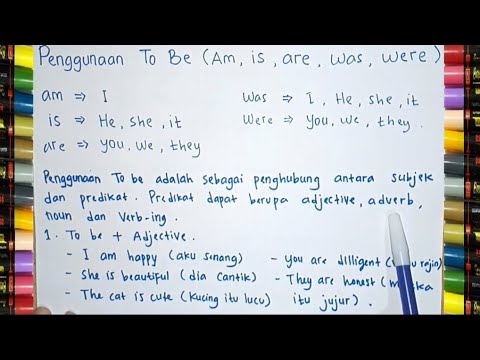 Penggunaan To Be (Am, is, are, was, were)
am ⇒ I
is ⇒ He, she, it
are ⇒ you, we, they
was ⇒ I, He, she, it
were ⇒ you, we, they.
Penggunaan To be adalah sebagai penghubung antara subjek
dan predikat. Predikat dapat berupa adjective, adverb,
noun dan verb-ing.
1. To be + Adjective.
- I am happy (aku senang)
- She is beautiful (dia cantik)
- The cat is cute (kucing itu lucu)
- You are dilligent ( rajin)
- They are honest (
itu jujur).